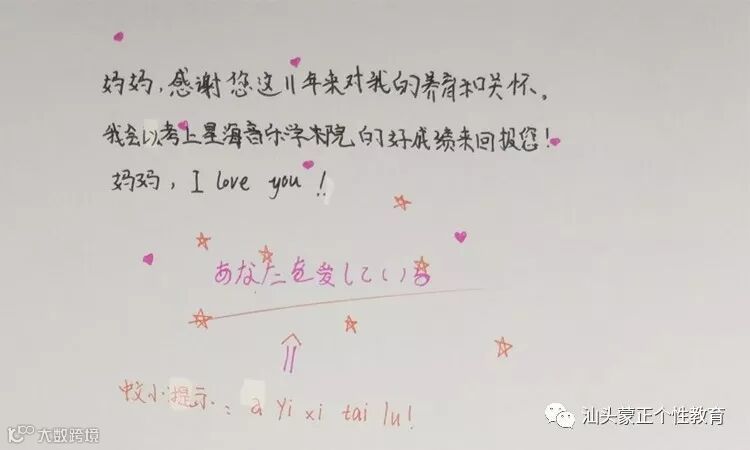 妈妈,感谢您这11年来对我的养育和关怀。
我会以考上星海音乐学术院的好成绩来回报您!
妈妈, I love you !!
あなたを愛している
小提示: a yi xi tai lu!
汕头蒙正个性教育
10100 大数跨境